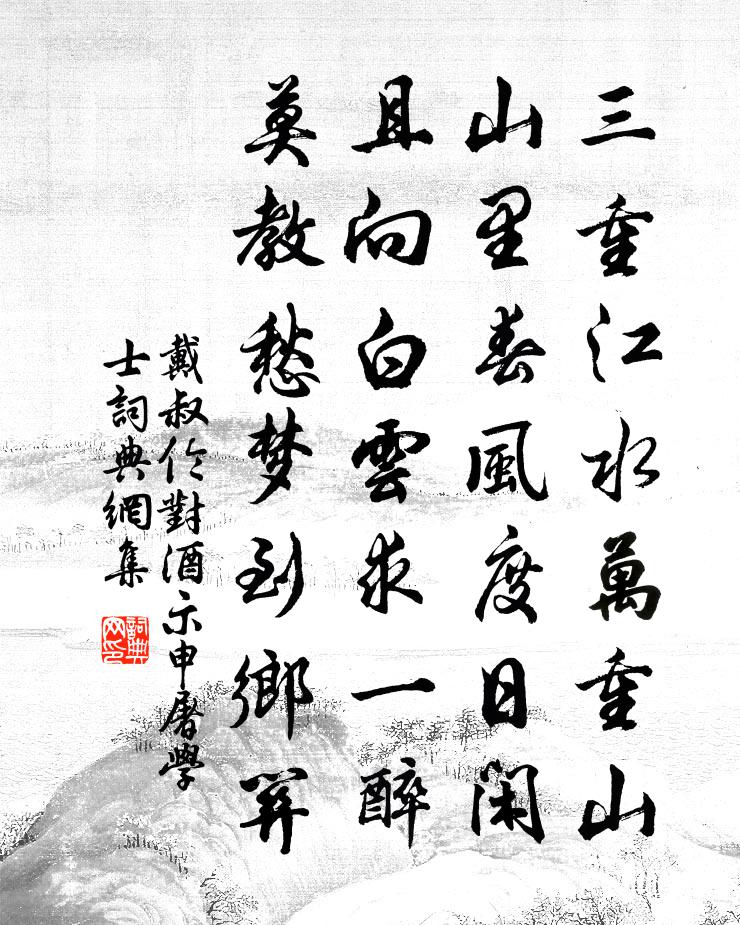 三重江水萬重山
山里春風度日閑
且向白雲求一醉
莫教愁梦到鄉關
戴叔伦對酒示申屠學
士詞典網集
詞典
网印